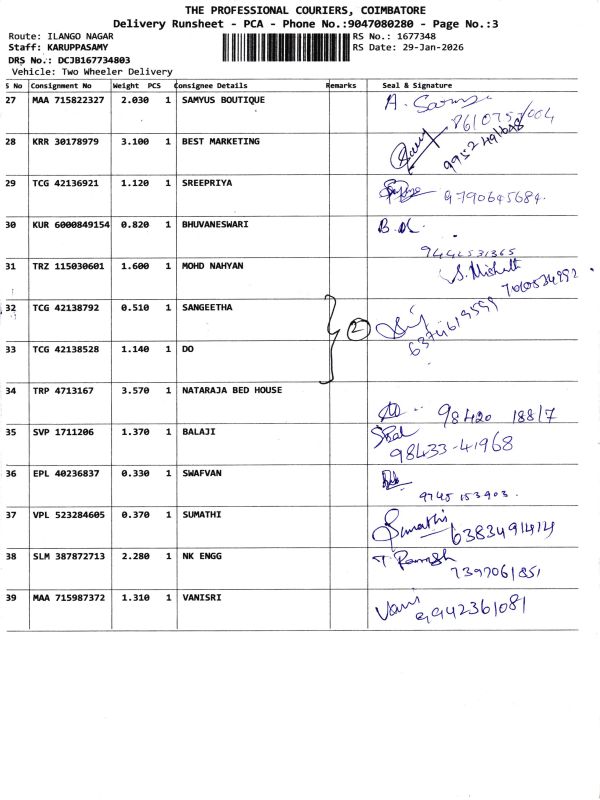 THE PROFESSIONAL COURIERS, COIMBATORE
Delivery Runsheet - PCA - Phone No.:9047080280 - Page No.:3
Route: ILANGO NAGAR
RS No.: 1677348
Staff: KARUPPASAMY
RS Date: 29-Jan-2026
DRS No.: DCJB167734803
Vehicle: Two Wheeler Delivery
S No Consignment No Weight PCS Consignee Details Remarks Seal & Signature
27 MAA 715822327 2.030 1 SAMYUS BOUTIQUE
28 KRR 30178979 3.100 1 BEST MARKETING
29 TCG 42136921 1.120 1 SREEPRIYA 9790645684.
30 KUR 6000849154 0.820 1 BHUVANESWARI B.
31 TRZ 115030601 1.600 1 MOHD NAHYAN
32 TCG 42138792 0.510 1 SANGEETHA 2 6374619599
33 TCG 42138528 1.140 1 DO
34 TRP 4713167 3.570 1 NATARAJA BED HOUSE 98420 18817
35 SVP 1711206 1.370 1 BALAJI 98433-41968
36 EPL 40236837 0.330 1 SWAFVAN 9745 153903.
37 VPL 523284605 0.370 1 SUMATHI Sumathi 6383491414
38 SLM 387872713 2.280 1 NK ENGG T Ramesh 7397061851
39 MAA 715987372 1.310 1 VANISRI Vani 9942361081